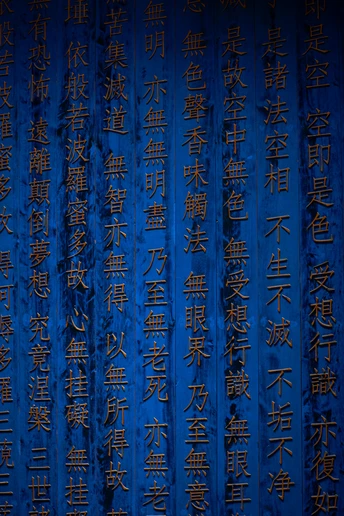 即是空 空即是色 受想行識 亦復如
是諸法空相 不生不滅 不垢不淨
是故空中無色 無受想行識 無眼耳
無色聲香味觸法 無眼界 乃至無意
無明 亦無無明盡 乃至無老死 亦無老
苦集滅道 無智亦無得 以無所得故
埵 依般若波羅蜜多故 心無挂礙 無挂
無有恐怖 遠離顛倒夢想 究竟涅槃 三世
般若波羅蜜多故 得阿耨多羅三藐三